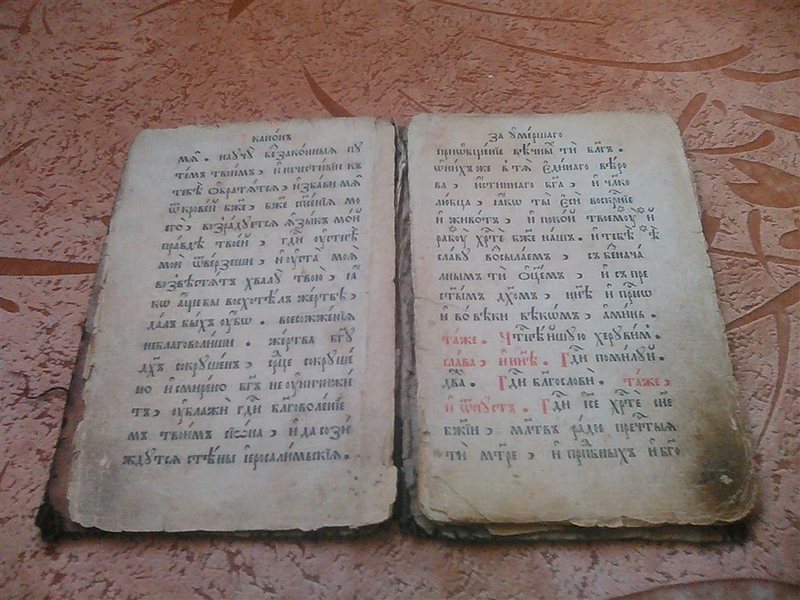 канѡ́нъ
мѧ̀ . наꙋчꙋ̀ беꙁако́нныѧ пꙋ
те́мъ твои́мъ , и҆ нечести́вїи къ
тебѣ̀ ѡ҆братѧ́тсѧ , и҆ꙁба́ви мѧ̀
ѿ крове́й бж҃е , бж҃е сп҃се́нїѧ мо
его̀ , воꙁра́дꙋетсѧ ѧ҆ꙁы́къ мо́й
пра́вдѣ твое́й , гд҇и ᲂу҆стнѣ̀
моѝ ѿве́рꙁеши , и҆ ᲂу҆ста̀ моѧ̀
воꙁвѣстѧ́тъ хвалꙋ̀ твою̀ , ꙗ҆
кѡ а҆́ще бы восхотѣ́лъ же́ртвѣ ,
да́лъ бы́хъ ᲂу҆́бѡ . всесожже́нїѧ
неблаговоли́ши . же́ртва бг҃ꙋ
дх҃ъ сокрꙋше́нъ , ср҃це сокрꙋше
но̀ и҆ смире́но бг҃ъ не ᲂу҆ничижи́
тъ , ᲂу҆блажѝ гд҇и бл҃говоле́нїе
мъ твои́мъ сїѡ́на , и҆ да соꙁи
ждꙋтсѧ стѣ́ны і҆ерⷭ҇али́мьскїѧ .
за ᲂу҆ме́ршаго
приѡбще́нїе вѣ́чныⷯ тѝ бл҃гъ .
ѡ҆ни́хъже в̾ тѧ̀ є҆ди́наго вѣ́ро
ва , и҆́стиннаго бг҃а , и҆ чл҃ко
лю́бца , ꙗ҆́кѡ ты̀ є҆сѝ воскр҃нїе
и҆ живо́тъ , и҆ поко́й твоемꙋ̀ и҆
рабꙋ̀ хр҇те́ бж҃е на́шъ . и҆ тебѣ̀
сла́вꙋ воꙁсыла́емъ , съ беꙁнача́
лнымъ тѝ ѻ҆ц҃е́мъ , и҆ съ пре
ст҃ы́мъ дх҃омъ , нн҃ѣ и҆ при́сно
и҆ во вѣ́ки вѣкѡ́мъ , а҆ми́нь .
та́же . Чт҇нѣ́йшꙋю херꙋви́мъ .
сла́ва , и҆ нн҃ѣ . Гд҇и поми́лꙋй .
два̀ . Гд҇и бл҃гословѝ . та́же ,
и҆ ѿпꙋ́стъ . Гд҇и і҆с҃е хр҇те́ сн҃е
бж҃їи , мл҃твъ ра́ди пречⷭ҇тыѧ
тѝ мт҃ре , и҆ прпⷣбныхъ и҆ бг҃о